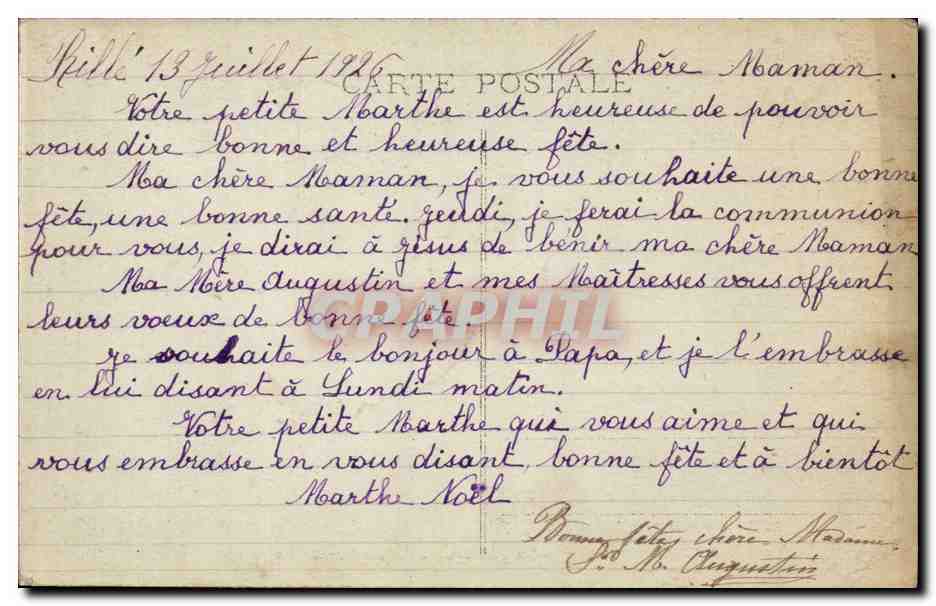 Rillé 13 Juillet 1926 Ma chère Maman.
CARTE POSTALE
Votre petite Marthe est heureuse de pouvoir
vous dire bonne et heureuse fête.
Ma chère Maman, je vous souhaite une bonne
fête, une bonne santé. Jeudi, je ferai la communion
pour vous, je dirai à Jésus de bénir ma chère Maman
Ma Mère Augustin et mes Maîtresses vous offrent
leurs vœux de bonne fête.
CARAPHIL
Je souhaite le bonjour à Papa, et je l'embrasse
en lui disant à Lundi matin.
Votre petite Marthe qui vous aime et qui
vous embrasse en vous disant, bonne fête et à bientôt
Marthe Noël
Bonne fête, chère Madame.
Sr M. Augustin